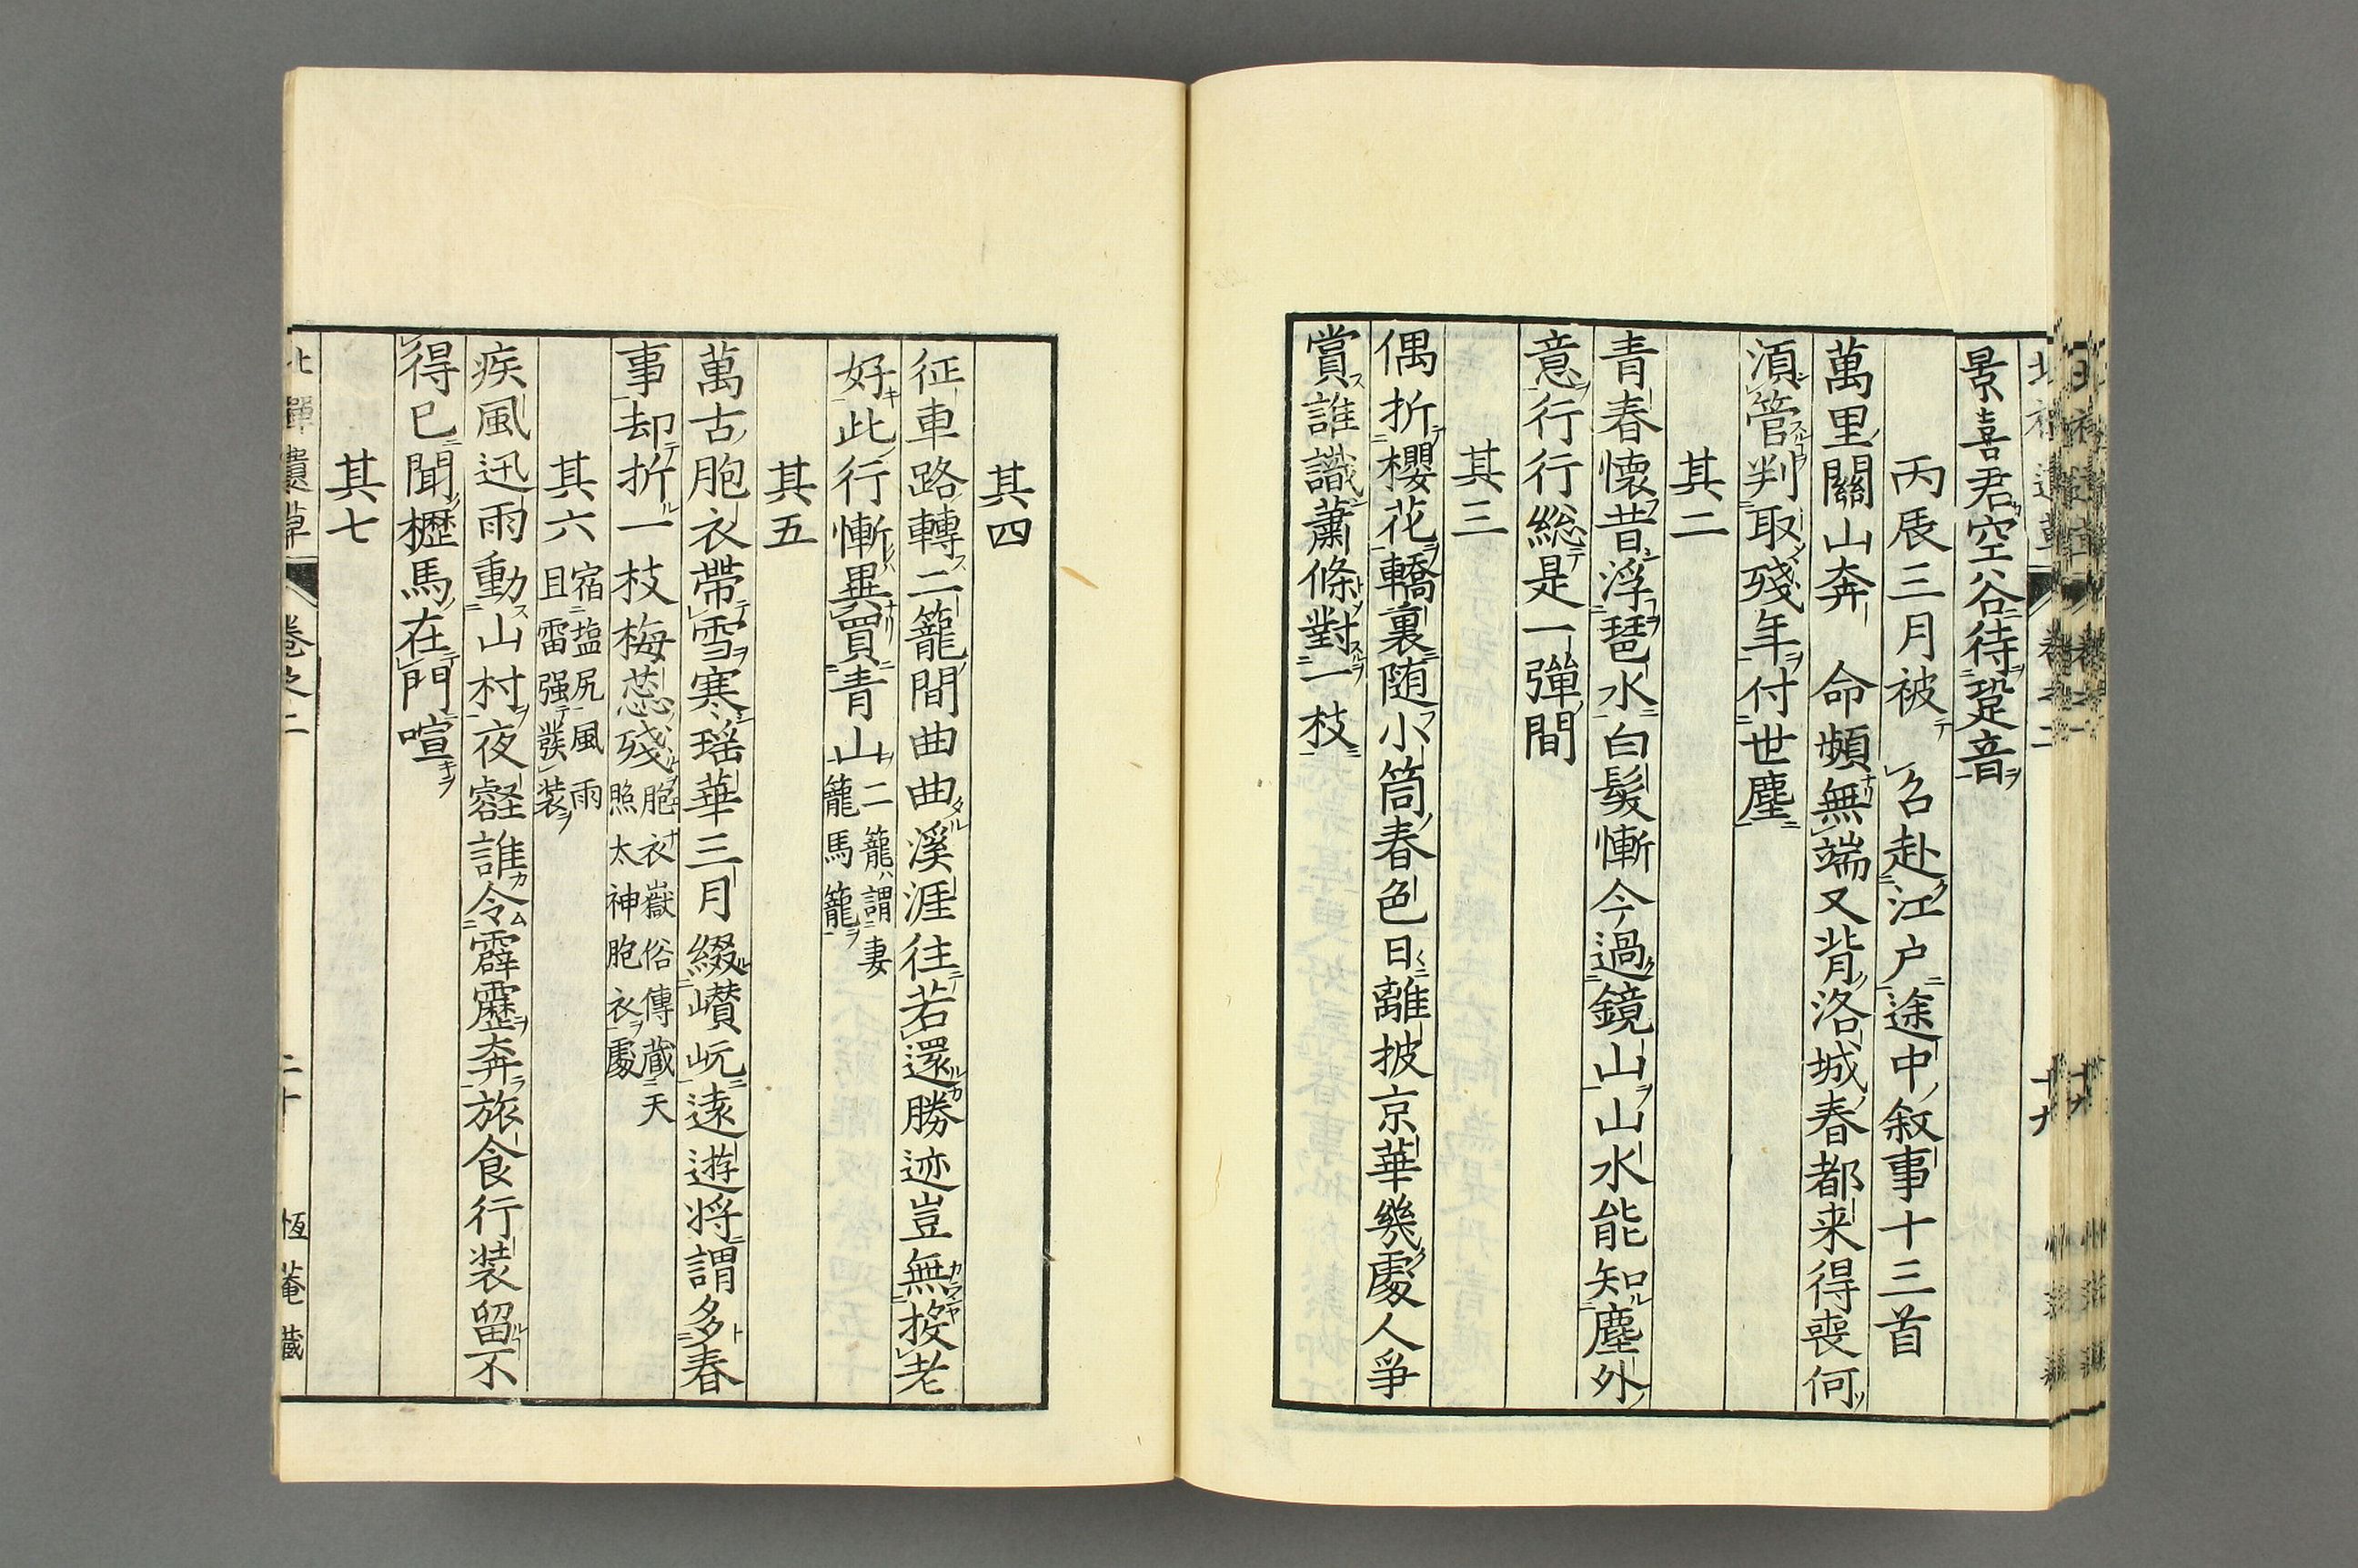 景喜君空谷待跫音
丙辰三月被 召赴江戸途中叙事十三首
萬里關山奔 命頻無端又背洛城春都来得喪何
須管判取殘年付世塵
其二
青春懐昔浮琶水白髪慚今過鏡山山水能知塵外
意行行総是一彈間
其三
偶折櫻花轎裏随小筒春色日離披京華幾處人爭
賞誰識蕭條對一枝
其四
征車路轉二籠間曲曲溪涯往若還勝迹豈無按老
好此行慚異買青山二籠謂妻
籠馬籠
其五
萬古胞衣帶雪寒瑶華三月綴巑岏遠遊将謂多春
事却折一枝梅蕊殘胞衣嶽俗傳蔵天
照太神胞衣處
其六宿塩尻風雨
且雷强發装
疾風迅雨動山村夜壑誰令霹靂奔旅食行装留不
得已聞櫪馬在門喧
其七
北禪遺草 卷之二 二十 恆菴藏